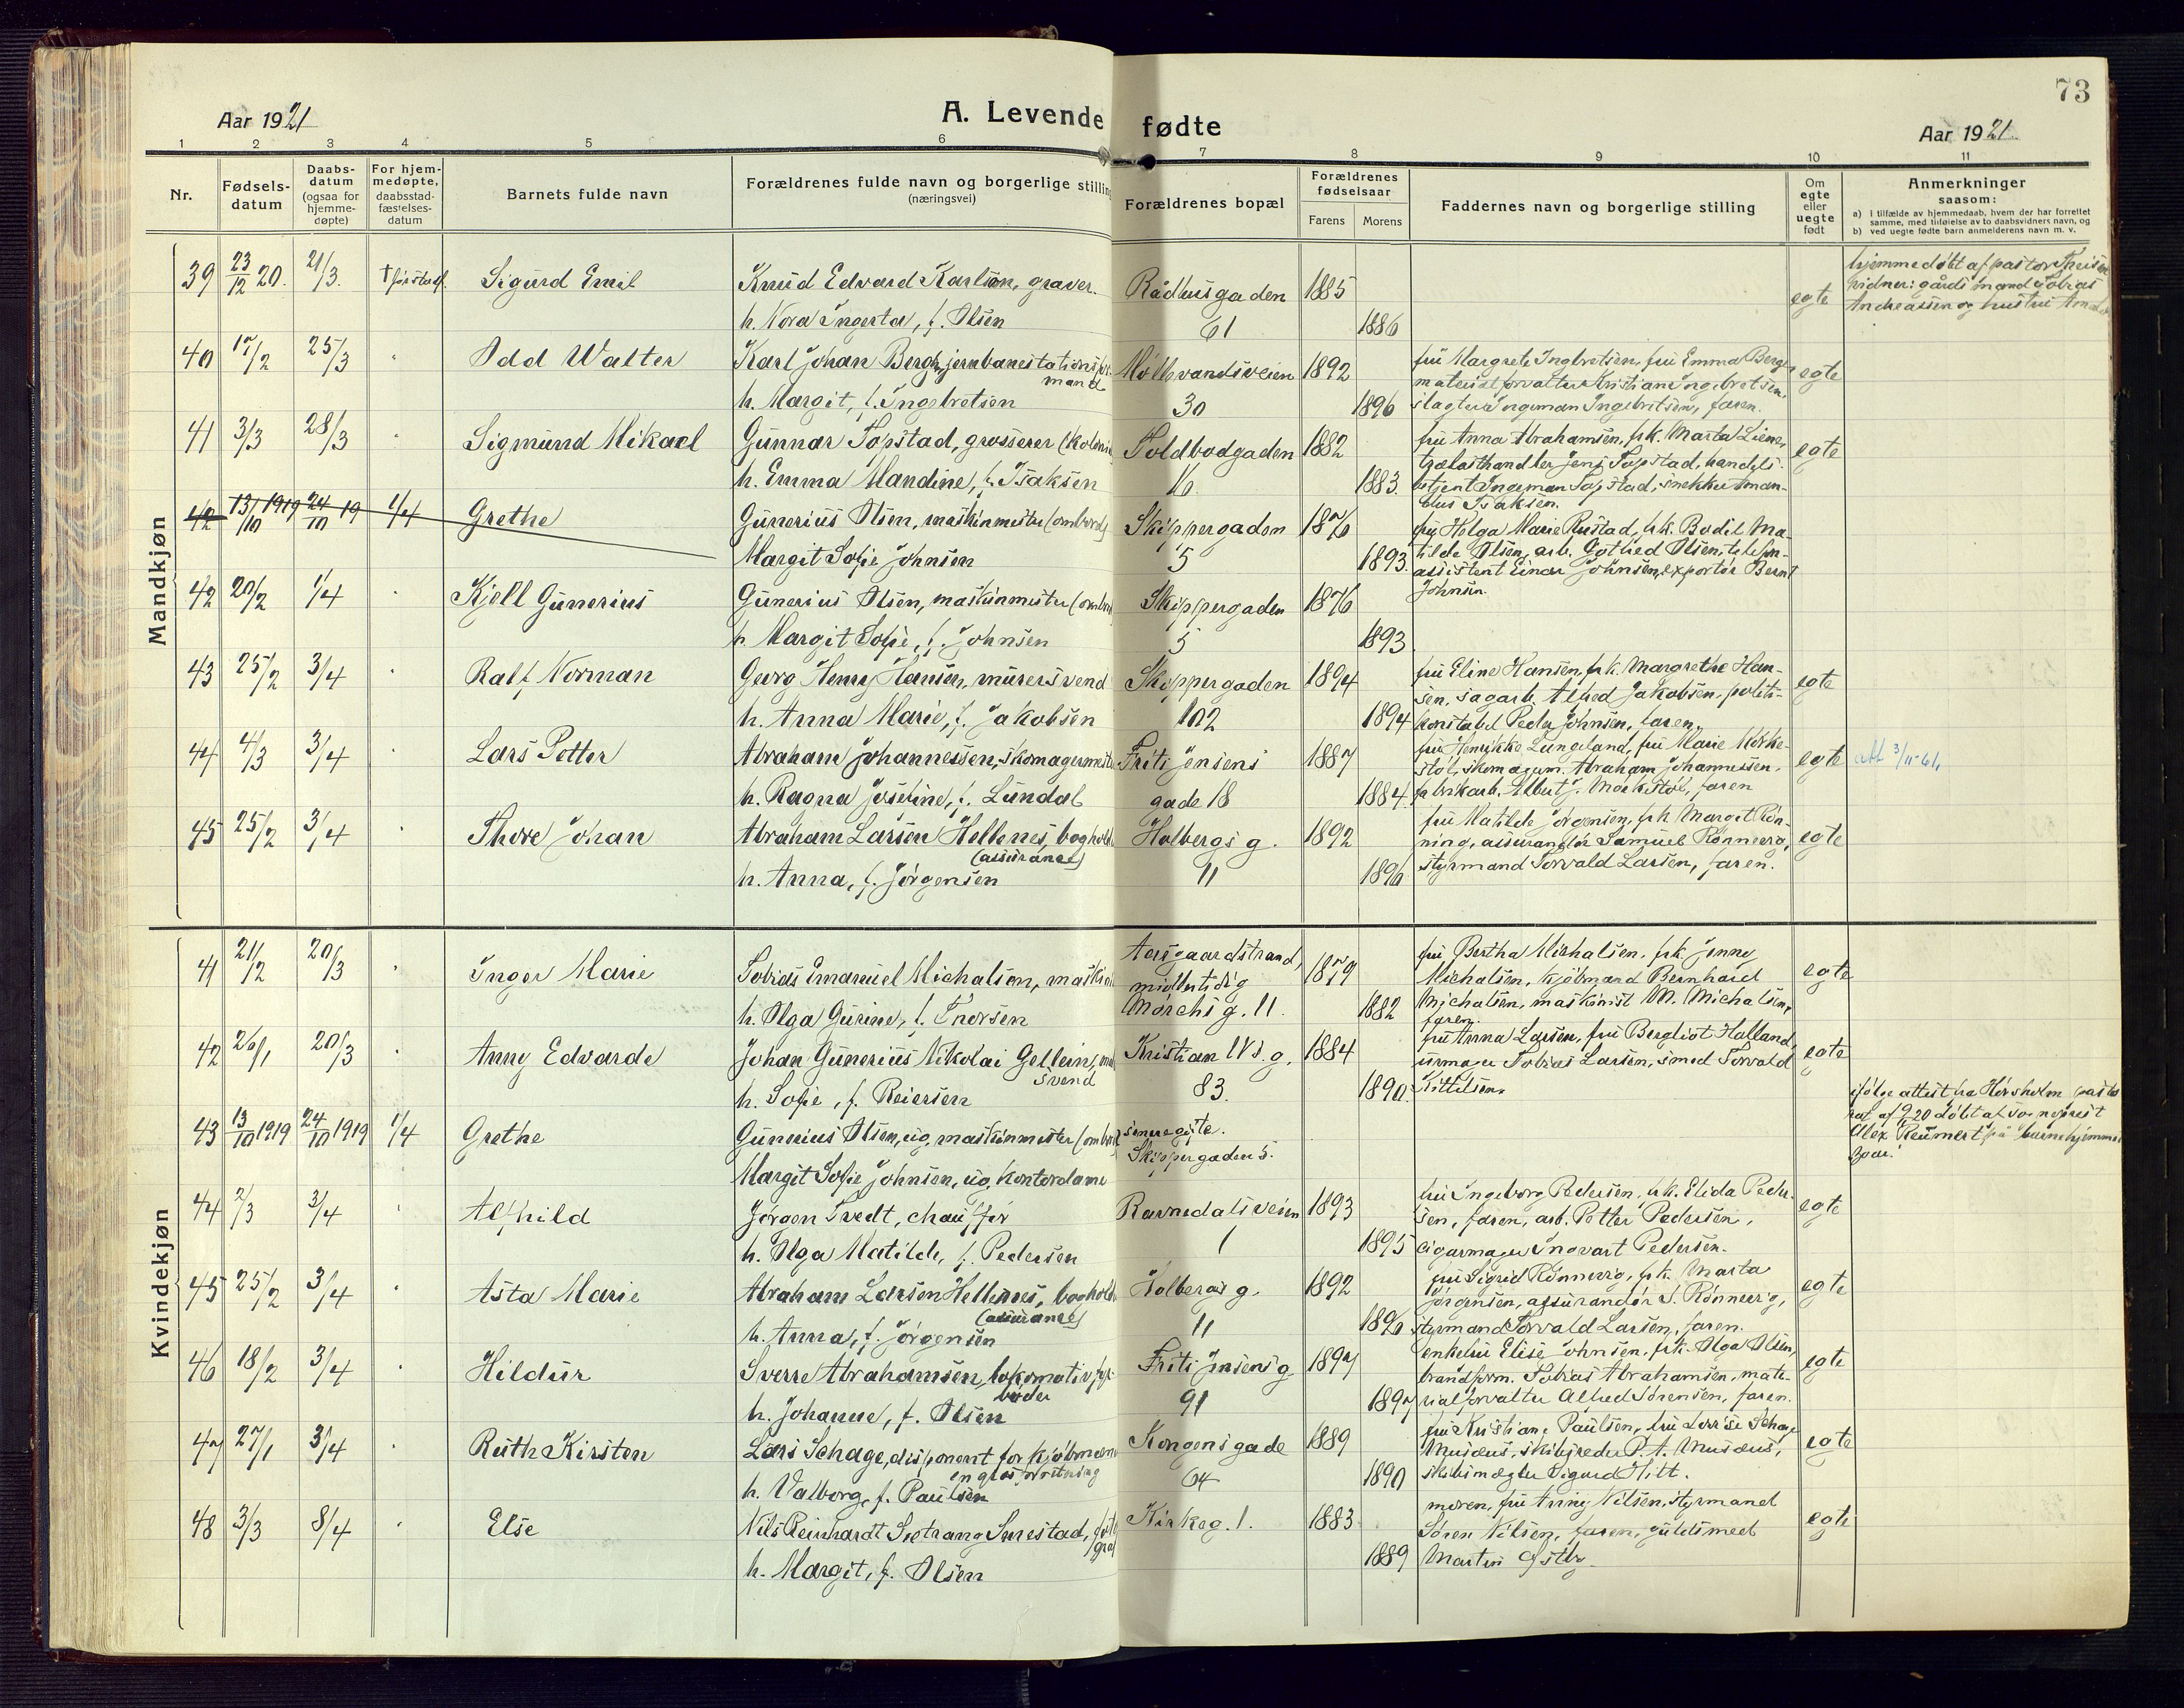 73
Aar 1921
A. Levende fødte
Aar 1921
1 2 3 4 5 6 7 8 9 10 11
Nr.
Fødsels-
datum
Daabs-
datum
(ogsaa for
hjemme-
døpte)
For hjem-
medøpte,
daabsstad-
fæstelses-
datum
Barnets fulde navn
Forældrenes fulde navn og borgerlige stilling
(næringsvei)
Forældrenes bopæl
Forældrenes
fødselsaar
Farens
Morens
Faddernes navn og borgerlige stilling
Om
egte
eller
uegte
født
Anmerkninger
saasom:
a) i tilfælde av hjemmedaab, hvem der har forrettet
samme, med tilføielse av to daabsvidners navn, og
b) ved uegte fødte barn anmelderens navn m. v.
Mandkjøn
39 23/12 20. 21/3. Sigurd Emil Knud Edvard Karlson, graver. Rådhusgaden 1885 egte
h. Nora Ingerta, f. Olsen 61 1886
hjemmedöbt af pastor
vidner: gårdsmand Tobias
Andreassen og hustru
40 17/2 25/3 " Odd Walter Karl Johan Bergh, jernbanestationsfor-
mand Möllevandsveien 1892 egte
h. Margit, f. Ingebretsen 30 1896
fru Margrete Ingbretsen, fru Emma Bergh
materialforvalter Kristian Ingebretsen,
slagter Ingeman Ingebritsen, faren.
41 3/3 28/3 " Sigmund Mikael Gunnar Topstad, grosserer (kolonia Toldbodgaden 1882 egte
h. Emma Mandine, f. Isaksen 16. 1883.
fru Anna Abrahamsen, frk. Marta Liene,
trælasthandler Jens Topstad, handels-
betjent Ingeman Topstad, snekker Aman-
dus Isaksen.
42 13/10 1919 24/10 19 1/4 Grethe Gunerius Olsen, maskinmester (ombord) Skippergaden 1876
Margit Sofie Johnsen 5 1893.
fru Helga Marie Rustad, frk. Bodil Ma-
tilde Olsen, arb. Gothed Olsen, telefon-
assistent Einar Johnsen, exportör Bernt
Johnsen.
42 20/2 1/4 Kjell Gunerius Gunerius Olsen, maskinmester (ombord Skippergaden 1876
h. Margit Sofie, f. Johnsen 5 1893.
43 25/2 3/4 " Ralf Norman Georg Henry Hansen, murersvend Skippergaden 1894 egte
h. Anna Marie, f. Jakobsen 102 1894
fru Eline Hansen, frk. Margrethe Han-
sen, sagarb. Alfred Jakobsen, politi-
konstabel Peder Johnsen, faren.
44 4/3 3/4 " Lars Petter Abraham Johannessen, skomagermester Fritz Jensens 1887 egte att 3/11-61
h. Ragna Josefine, f. Lundal gade 18 1884
fru Henrikke Lungeland, fru Marie Mörke-
stöl, skomagerm. Abraham Johannessen,
fabrikarb. Albert J. Mörkstöl, faren
45 25/2 3/4 " Thore Johan Abraham Larsen Hellenes, boghold
(assurance) Holbergs g. 1892 egte
h. Anna, f. Jörgensen 11 1896
fru Matilde Jörgensen, frk Margit Rön-
ning, assurandör Samuel Rönnevig,
styrmand Torvald Larsen, faren.
Kvindekjøn
41 21/2 20/3 " Inger Marie Tobias Emanuel Michalsen, maskin Aasgaardstrand,
midlertidig
Mörchs g. 11. 1879 egte
h. Olga Gurine, f. Thorsen 1882
fru Bertha Michalsen, frk. Jenny
Michalsen, kjöbmand Bernhard
Michalsen, maskinist M. Michalsen,
faren.
42 26/1 20/3 " Anny Edvarde Johan Gunerius Nikolai Gellein,
svend Kristian IVs. g. 1884 egte
h. Sofie, f. Reiersen 83. 1890.
fru Anna Larsen, fru Bergliot Halland,
urmager Tobias Larsen, smed Torvald
Kittilsen.
43 13/10 1919 24/10 1919 1/4 Grethe Gunerius Olsen, ug. maskinmester (ombord senere gifte.
Margit Sofie Johnsen, ug. kontordame Skippergaden 5.
ifölge attest fra Hörsholm pasto
rat af 9/20 döbt af sogneprest
Alex Reumert på barnehjemmet
44 7/3 3/4 " Alfhild Jörgen Tvedt, chauffør Ravnedalsveien 1893 egte
h. Olga Matilde, f. Pedersen 1 1895
fru Ingeborg Pedersen, frk. Elida Peder-
sen, faren, arb. Petter Pedersen,
cigarmager Ingvart Pedersen.
45 25/2 3/4 " Asta Marie Abraham Larsen Hellenes, boghold
(assurance) Holbergs g. 1892 egte
h. Anna, f. Jörgensen 11 1896
fru Sigrid Rönnevig, frk. Marta
Jörgensen, assurandör S. Rönnevig,
styrmand Torvald Larsen, faren.
46 18/2 3/4 " Hildur Sverre Abrahamsen, lokomotivfyr-
böder Fritz Jensens g. 1897 egte
h. Johanne, f. Olsen 91 1897
enkefru Elise Johnsen, frk. Olga Olsen,
brandform. Tobias Abrahamsen, mate-
rialforvalter Alfred Sörensen, faren.
47 27/1 3/4 " Ruth Kirsten Lars Schage, disponent for kjöbmænn
engrosforretning Kongens gade 1889 egte
h. Valborg, f. Paulsen 64 1890
fru Kristiane Paulsen, fru Lovise Schage
Musæus, skibsreder P. A. Musæus,
skibsmægler Sigurd Hitt.
48 3/3 8/4 " Else Nils Reinhardt Sætrang Smestad, foto
graf Kirkeg. 1. 1883 egte
h. Margit, f. Olsen 1889
moren, fru Anny Nilsen, styrmand
Sören Nilsen, faren, guldsmed
Martin Østby